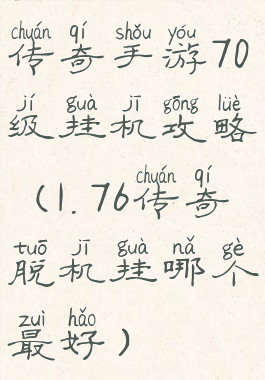 chuán qí shǒu yóu
传奇手游70
jí guà jī gōng lüè
级挂机攻略
chuán qí
(1.76传奇
tuō jī guà nǎ gè
脱机挂哪个
zuì hǎo
最好)